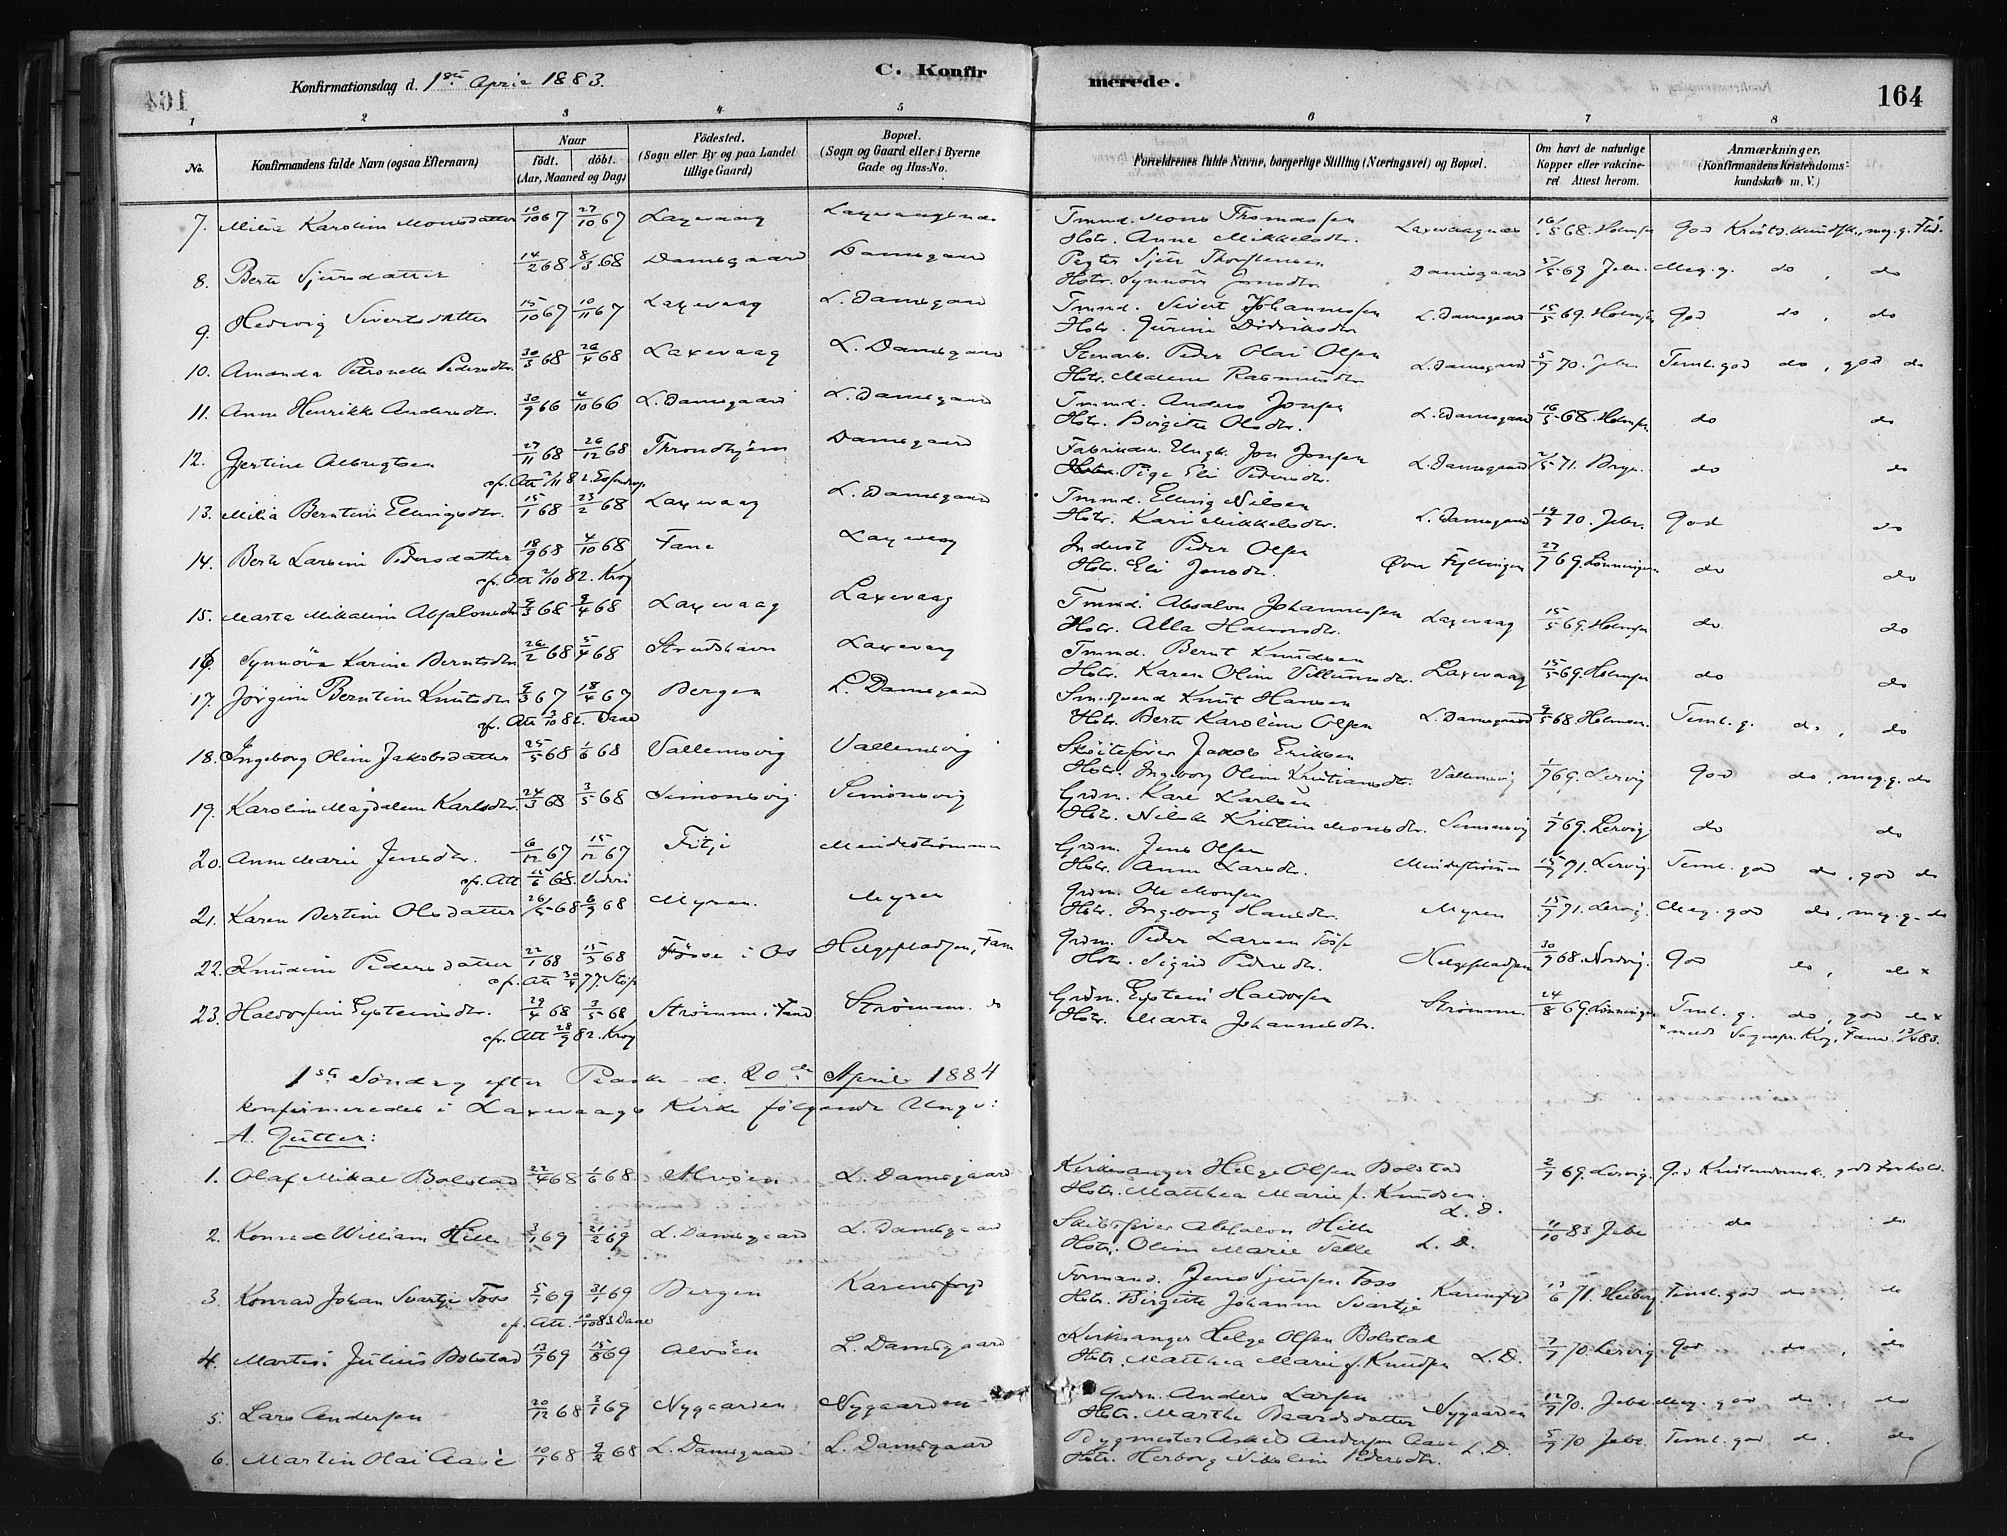 Konfirmationsdag d. 1ste April 1883.
C. Konfirmerede.
164
1 2 3 4 5 6 7 8
No.
Konfirmandens fulde Navn (ogsaa Efternavn)
Naar født. døbt. (Aar, Maaned og Dag)
Fødested. (Sogn eller By og paa Landet tillige Gaard)
Bopæl. (Sogn og Gaard eller i Byerne Gade og Hus-No.
Forældrenes fulde Navne, borgerlige Stilling (Næringsvei) og Bopæl.
Om havt de naturlige Kopper eller vaccineret Attest herom.
Anmærkninger. (Konfirmandens Kristendomskundskab m. V.)
7. Milia Karoline Monsdatter 10/10 67 27/10 67 Laxevaag
Tmmd. Mons Thomassen
Hstr. Anne Mikkelsdtr. 16/5 68. Holmsen
8. Berte Sjursdatter 14/2 68 8/3 68 Damsgaard Damsgaard
Sjur Thorstensen
Hstr. Synnöv Damsgaard 5/5 69 Jebe. Meg. g. do, do
9. Hedvig Sivertsdatter 15/10 67 10/11 67 Laxevaag L. Damsgaard
Tmmd. Sivert Johannessen
Hstr. Jürine Didriksdtr L. Damsgaard 15/5 69. Holmsen God do, do
10. Amanda Petronelle Pedersdtr. 30/3 68 26/4 68 Laxevaag L. Damsgaard
Peder Olai Olsen
Hstr. Malene Rasmusdtr L. Damsgaard 5/9 70. Jebe Teml. god do, god do
11. Anne Henrikke Andersdtr. 30/9 66 4/10 66 L. Damsgaard L. Damsgaard
Tmmd. Anders Jonsen
Hstr. Birgitte Olsdtr. L. Damsgaard 16/5 68. Holmsen do do
12. Gjertine Albregtsen 27/11 68 26/12 68 Throndhjem Damsgaard
Ungk. Jon Jonsen
Pige Eli Pedersdtr. L. Damsgaard do do
13. Milia Berntine Ellingsdtr. 15/1 68 23/2 68 Laxevaag L. Damsgaard
Tmmd. Elling Nilsen
Hstr. Kari Mikkelsdtr. L. Damsgaard 19/7 70. Jebe God do
14. Berte Larsine Pedersdatter 18/9 68 4/10 68 Fane Laxevaag
cfr. Att 2/10 82. Krog
Inderst Peder Olsen
Hstr. Eli Jensdtr. Øvre Fyllingen 27/7 69. Lönningen do do
15. Marta Mikaline Absalonsdtr 9/3 68 9/4 68 Laxevaag Laxevaag
Tmmd. Absalon Johannessen
Hstr. Alla Laxevaag 15/5 69. Holmsen do do
16. Synnöva Karine Berntsdtr 26/2 68 5/4 68 Strudshavn Laxevaag
Tmmd. Bernt Knudsen
Hstr. Karen Oline Villumsdtr. Laxevaag 15/5 69. Holmsen do do
17. Jörgine Berntine Knutsdtr 9/3 67 18/4 67 Bergen L. Damsgaard
cfr. Att 3/10 82. Daae
Smedsvend Knut Hansen
Hstr. Berte Karoline Olsen L. Damsgaard 9/5 68 Holmsen. Teml. g. do, do
18. Ingeborg Oline Jakobsdatter 25/5 68 1/6 68 Vallemsvig Vallemsvig
Sköitefører Jakob Eriksen
Hstr. Ingeborg Oline Kristiansdtr Vallemsvig 1/7 69. Lervig God do, meg. g. do
19. Karoline Magdalene Karlsdtr. 24/3 68 3/5 68 Simonsvig Simonsvig
Grdm. Karl Karlsen
Hstr. Nilsine Kristine Monsdtr. Simonsvig 1/7 69. Lervig do do
20. Anne Marie Jensdtr. 6/12 67 15/12 67 Fitje Mindestrømmen
Grdm. Jens Olsen
Hstr. Anne Larsdtr. Mindestrømmen 15/7 71. Lervig. Teml. god do, god do
21. Karen Bertine Olsdatter 26/5 68 6/9 68 Myren Myren
Grdm. Ole Monsen
Hstr. Ingeborg Hansdtr. Myren 15/7 71. Lervig. Meg. god do, meg. g. do
22. Knudine Pedersdatter 22/1 68 15/3 68 i Os Helgepladsen, Fane
Grdm. Peder Larsen
Hstr. Sigrid Pedersdtr. Helgepladsen 30/9 68. Nordvig. God do, do x
23. Haldorsine Eysteinsdtr. 29/4 68 3/5 68 Strømme i Fane Strømmen do
cfr. Att 28/9 82. Krog
Grdm. Eystein Haldorsen
Hstr. Marta Johannesdtr. Strømmen 24/8 69. Lönningen Teml. g. do, god do x
x med Sognepr. Krog, Fane 12/4 83.
1ste Söndag efter Paaske d. 20de April 1884
konfirmeredes i Laxevaags Kirke følgende Unge:
A. Gutter:
1. Olaf Mikal Bolstad 22/4 68 1/6 68. Alvøen L. Damsgaard
Kirkesanger Helge Olsen Bolstad
Hstr. Matthea Marie f. Knudsen. L. D. 2/9 69. Lervig. God Kristendomsk. godt Forhold.
2. Konrad William Hille 3/1 69 21/2 69 L. Damsgaard L. Damsgaard
Skibsfører Absalon Hille
Hstr. Oline Marie Telle L. D. 11/10 83 Jebe do do
3. Konrad Johan Svartje Foss 5/1 69 31/1 69 Bergen
cf. Att. 10/10 83 Daae
Formand. Jens Sjursen Foss
Hstr. Birgitte Johanne Svartje 13/6 71. Heiberg. Teml. god do do
4. Martin Julius Bolstad 13/7 69 15/8 69 Alvöen L. Damsgaard
Kirkesanger Helge Olsen Bolstad
Hstr. Matthea Marie f. Knudsen L. D. 7/7 70. Lervig God do, do
5. Lars Andersen 20/12 68 3/1 69 Nygaarden Nygaarden
Grdm. Anders Larsen
Hstr. Marthe Baardsdatter Nygaarden 12/9 70. Jebe Meg. god do. do
6. Martin Olai Aase 10/1 68 9/2 68 L. Damsgaard L. Damsgaard
Bygmester Askild Andersen Aase
Hstr. Herborg Nikoline Pedersdtr. L. D. 5/9 70 Jebe. Teml. god do. do